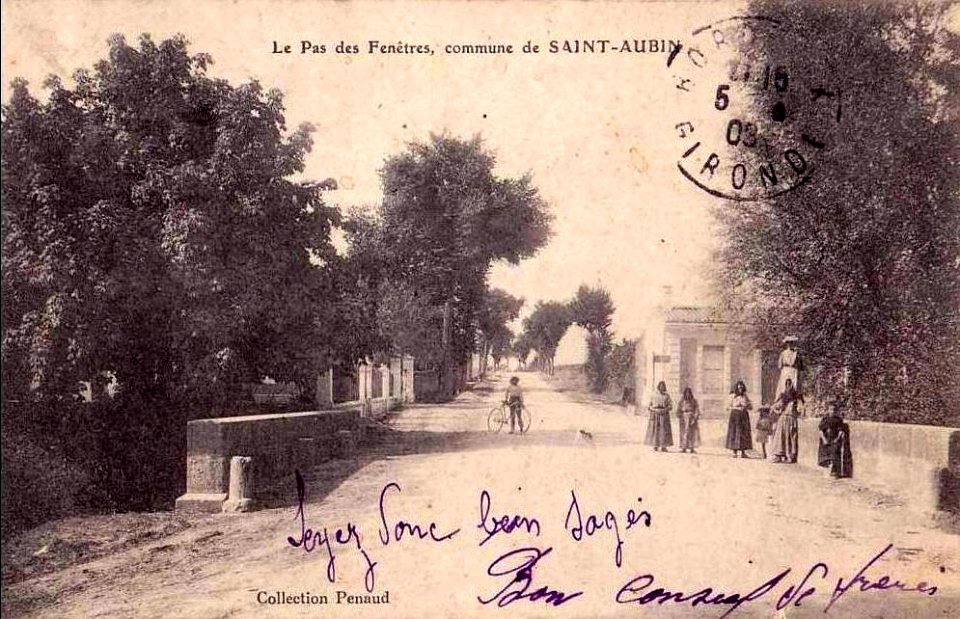 Le Pas des Fenêtres, commune de SAINT-AUBIN
15
5
03
GIRONDE
Soyez donc bien sages
Bon conseil de francis
Collection Penaud